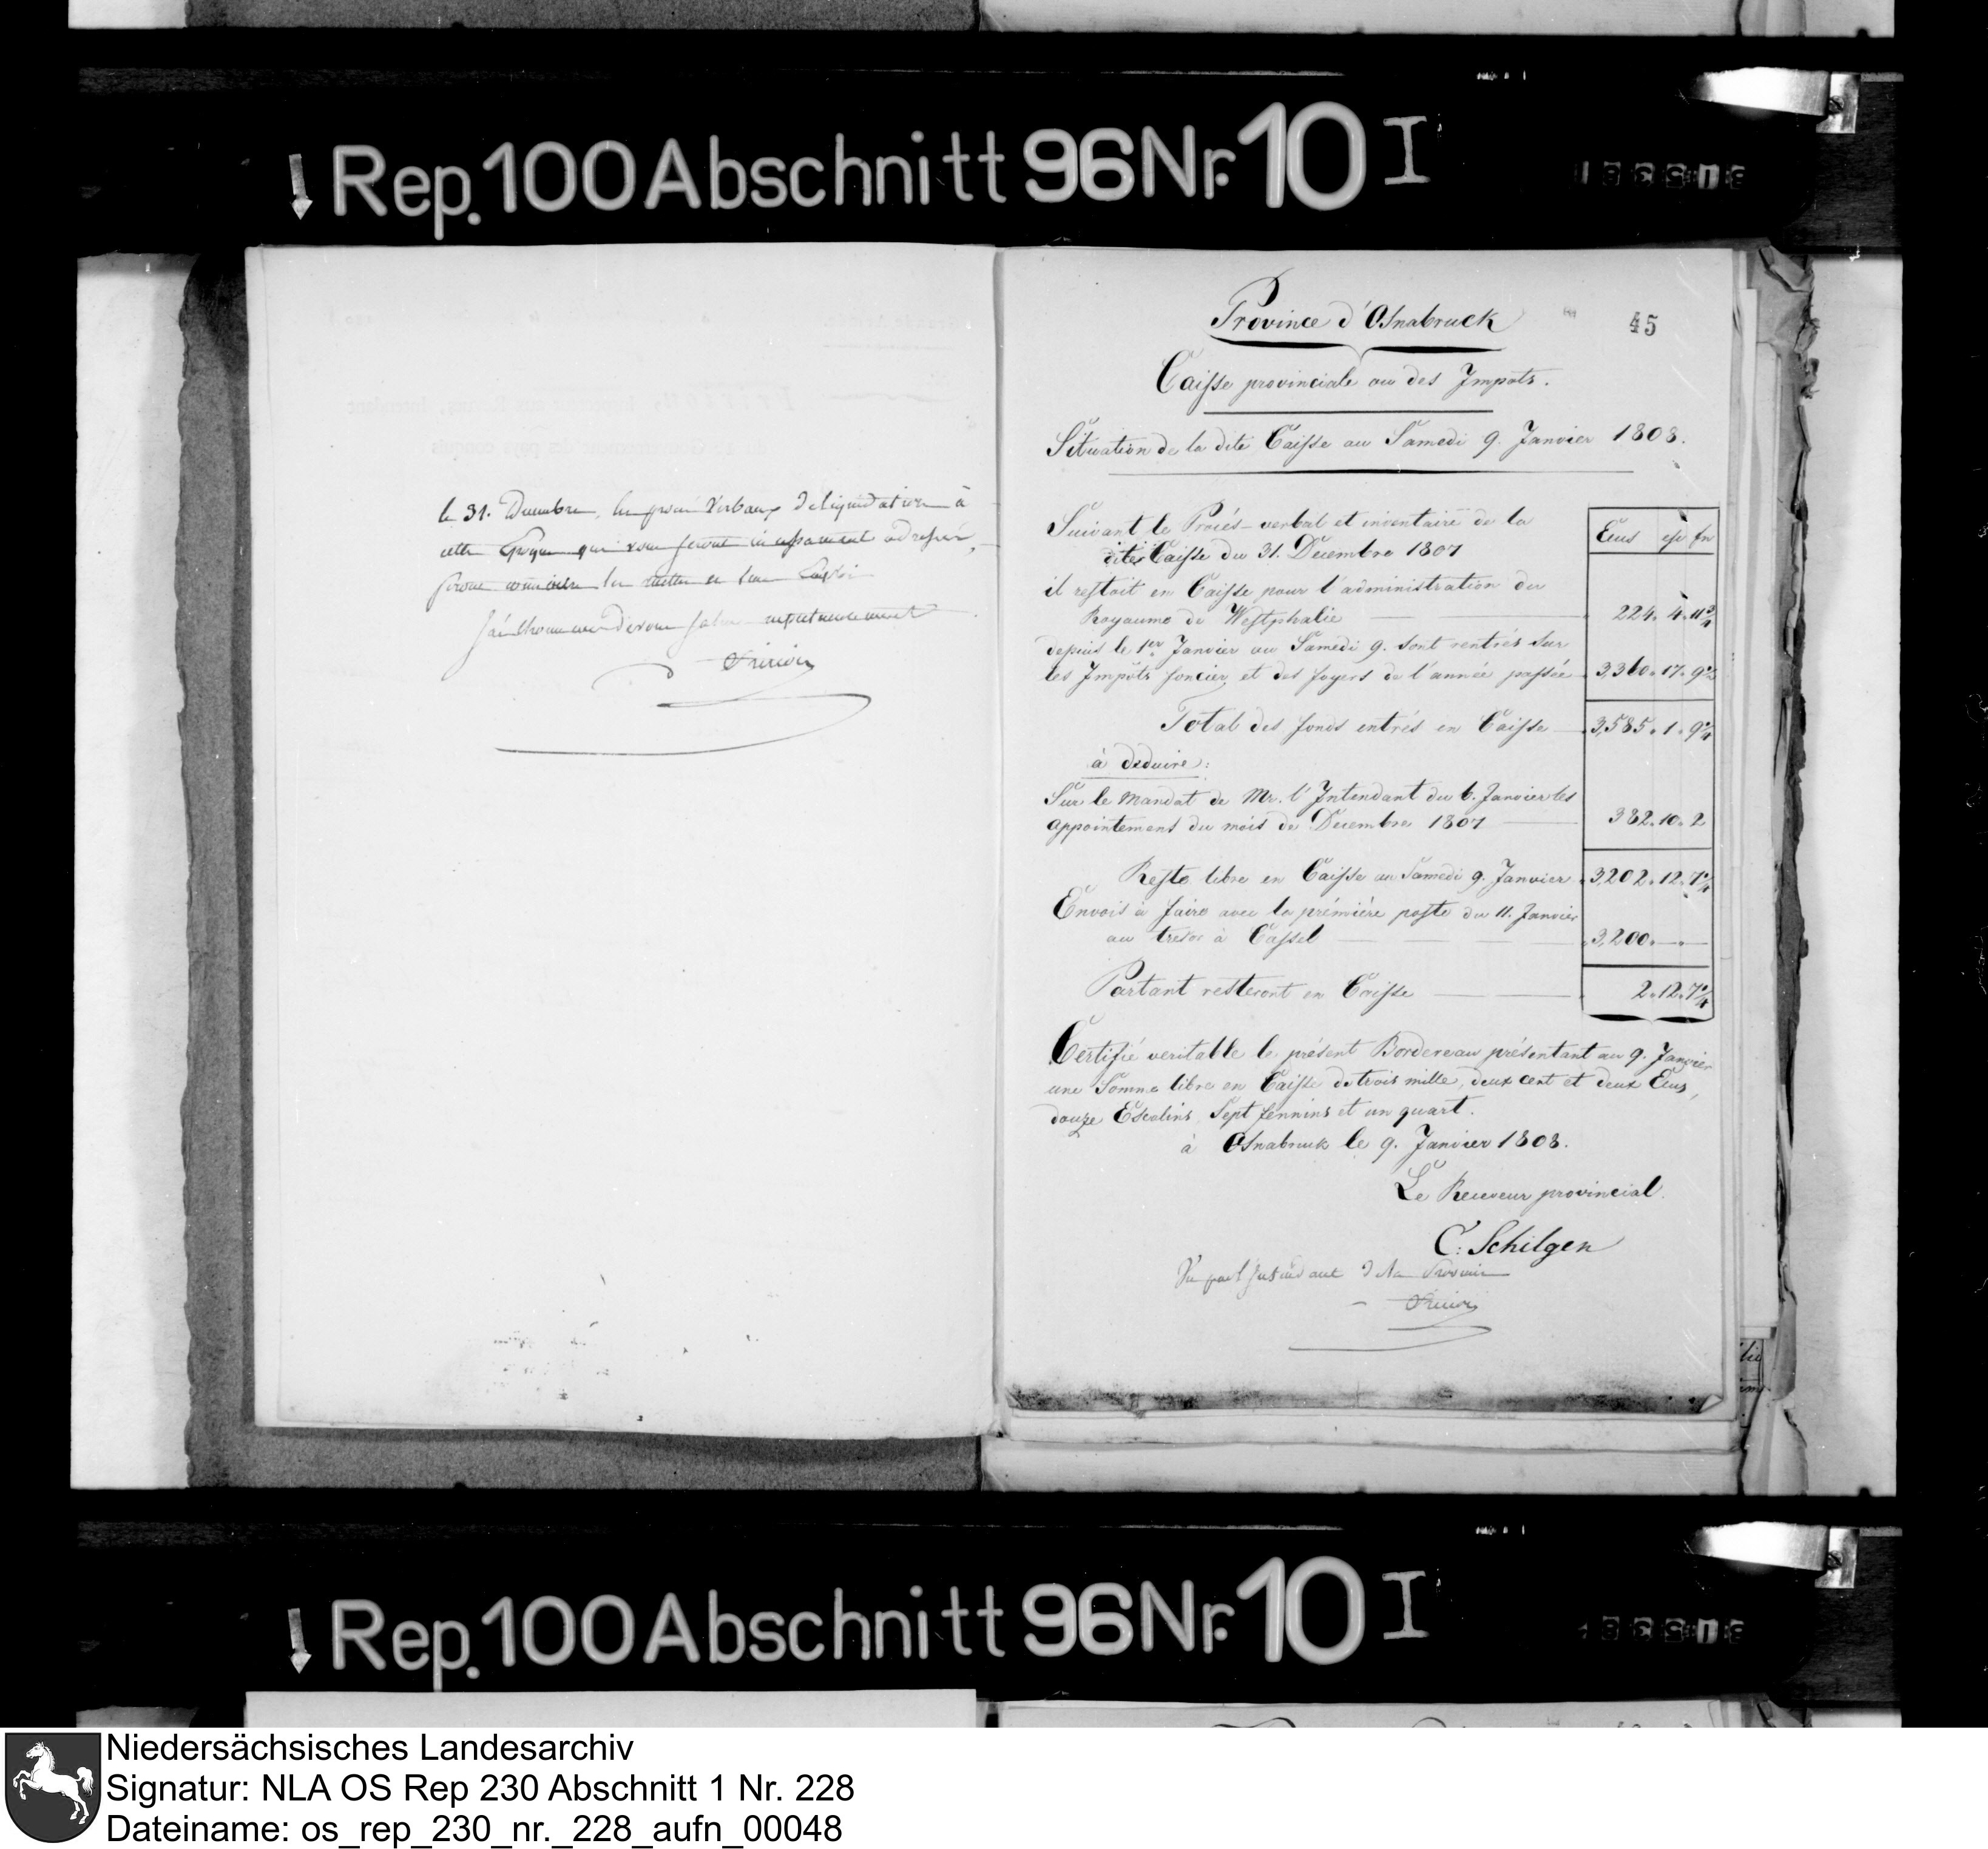 Rep. 100 Abschnitt 96 Nr. 10 I
le 31. Decembre, les procès Verbaux de liquidation à
cette Epoque qui vous seront incessamment adressés,
feront connoitre les
J'ai l'honneur de vous saluer
45
Province d'Osnabruck
Caisse provinciale ou des Impots.
Situation de la dite Caisse au Samedi 9. Janvier 1808.
Ecus esc fn
Suivant le Procés-verbal et inventaire de la
dite Caisse du 31. Decembre 1807
il restoit en Caisse pour l'administration du
Royaume de Westphalie 224. 4. 11 3/4
depuis le 1er Janvier au Samedi 9. sont rentrés sur
les Impôts foncier et des foyers de l'année passée 3,360. 17. 9 2/4
Total des fonds entrés en Caisse 3,585. 1. 9 1/4
à deduire:
Sur le mandat de Mr. l'Intendant du 6. Janvier les
appointemens du mois de Decembre 1807 382. 10. 2
Reste libre en Caisse au Samedi 9. Janvier 3,202. 12. 7 1/4
Envois à faire avec la prémière poste du 11. Janvier
au tresor à Cassel 3,200. — . —
Partant resteront en Caisse 2. 12. 7 1/4
Certifié veritable le présent Bordereau présentant au 9. Janvier
une Somme libre en Caisse de trois mille, deux cent et deux Ecus,
douze Escalins Sept fennins et un quart.
à Osnabruck le 9. Janvier 1808.
Le Receveur provincial
C: Schilgen
Vu par l'Intendant de la Province
Rep. 100 Abschnitt 96 Nr. 10 I
Niedersächsisches Landesarchiv
Signatur: NLA OS Rep 230 Abschnitt 1 Nr. 228
Dateiname: os_rep_230_nr._228_aufn_00048